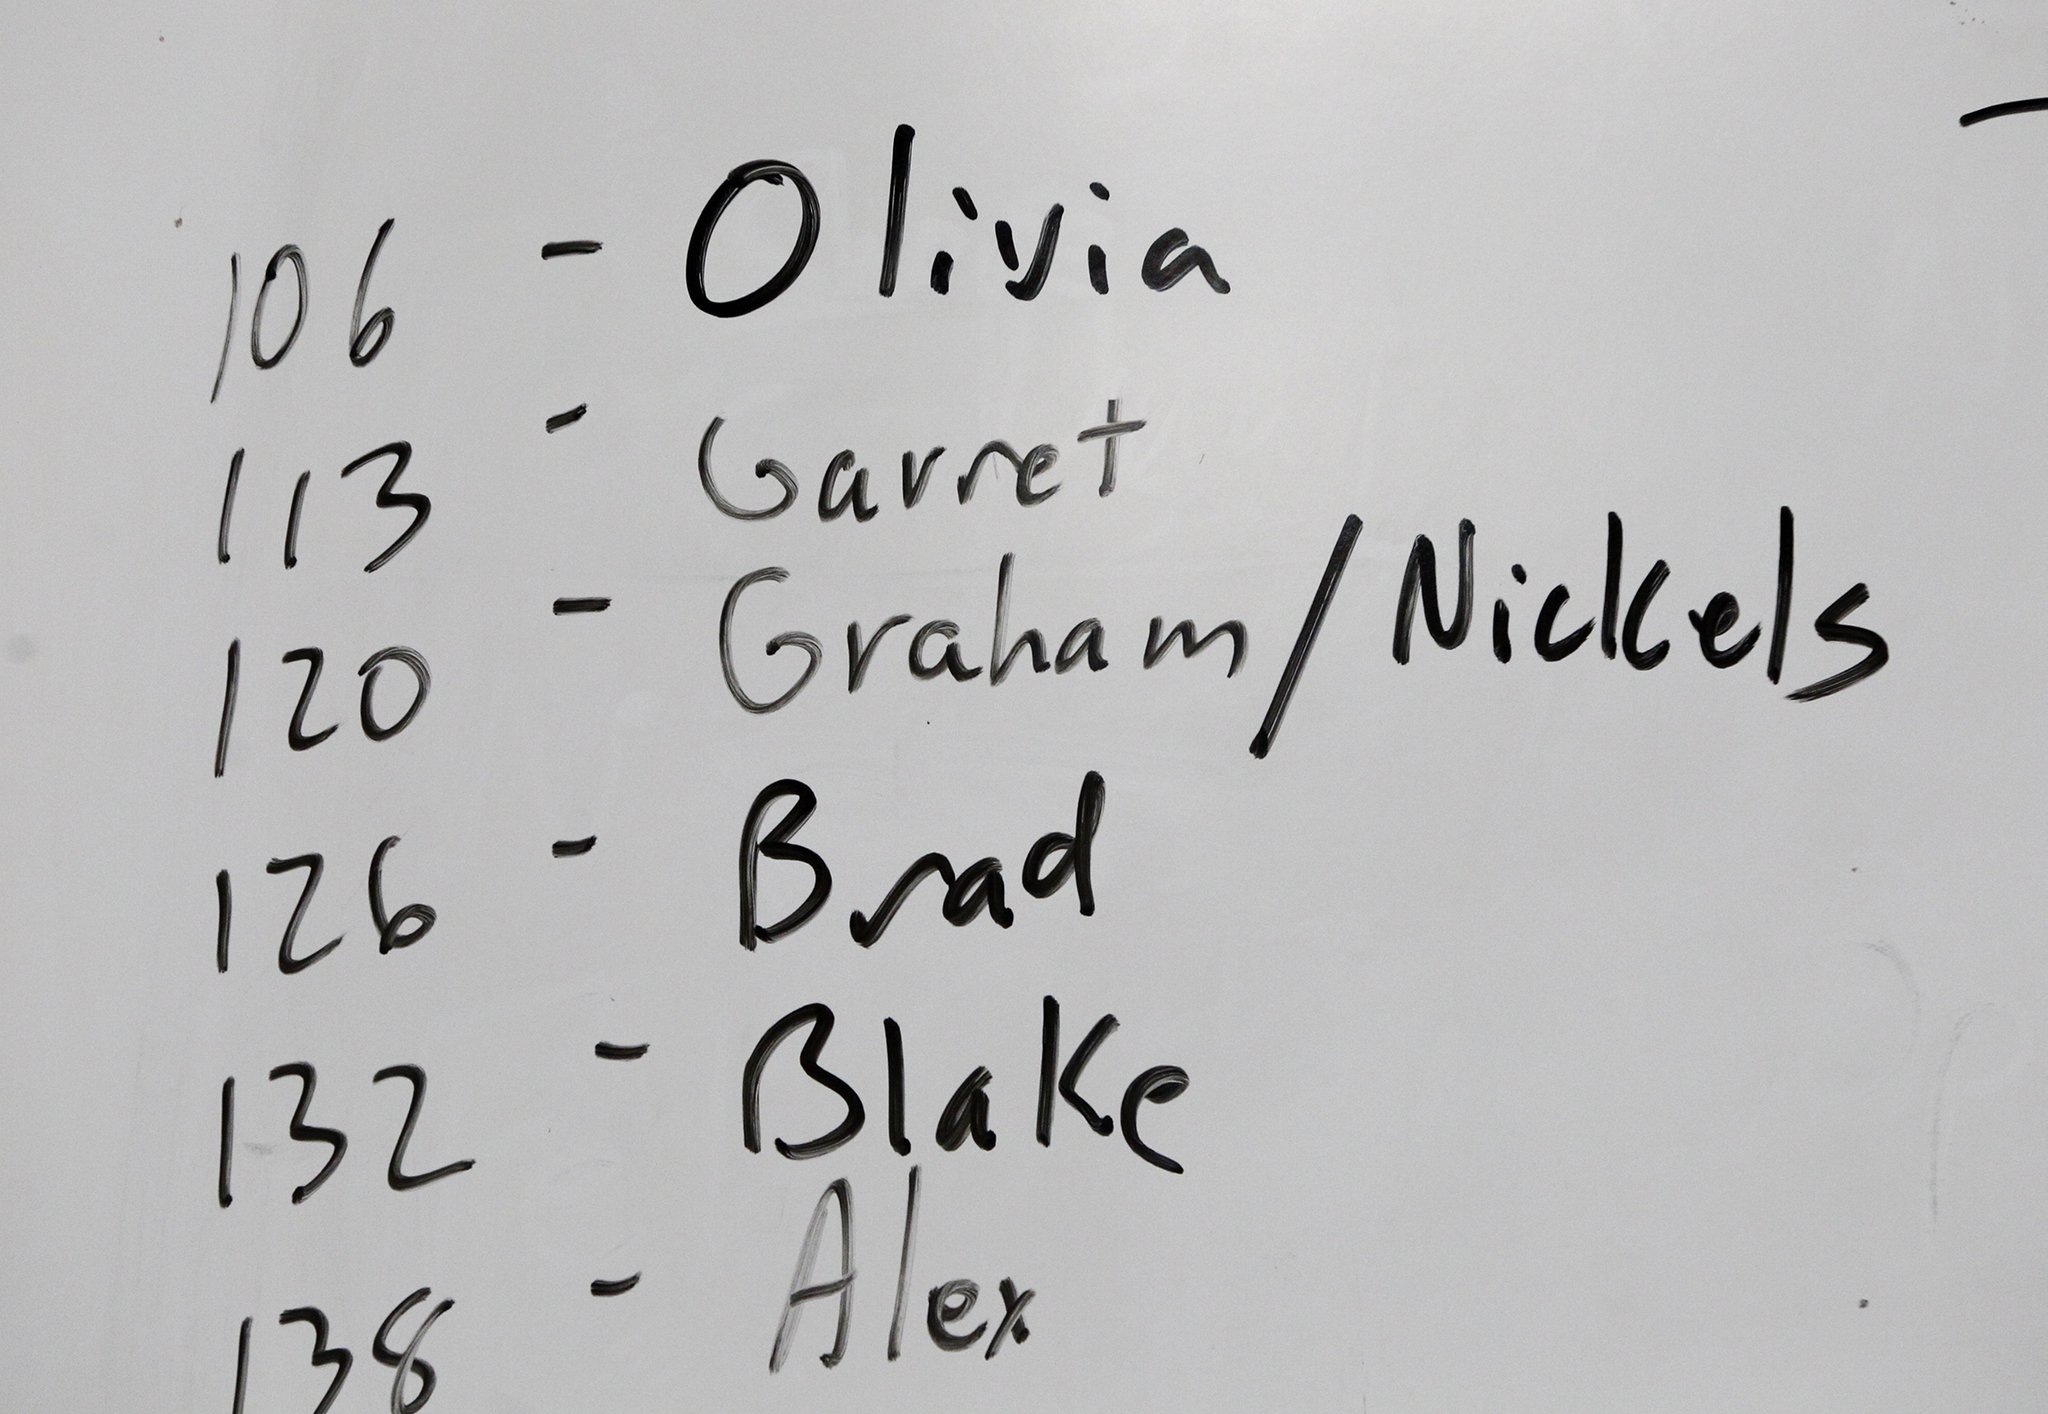 106 - Olivia
113 - Garret
120 - Graham/Nickels
126 - Brad
132 - Blake
138 - Alex